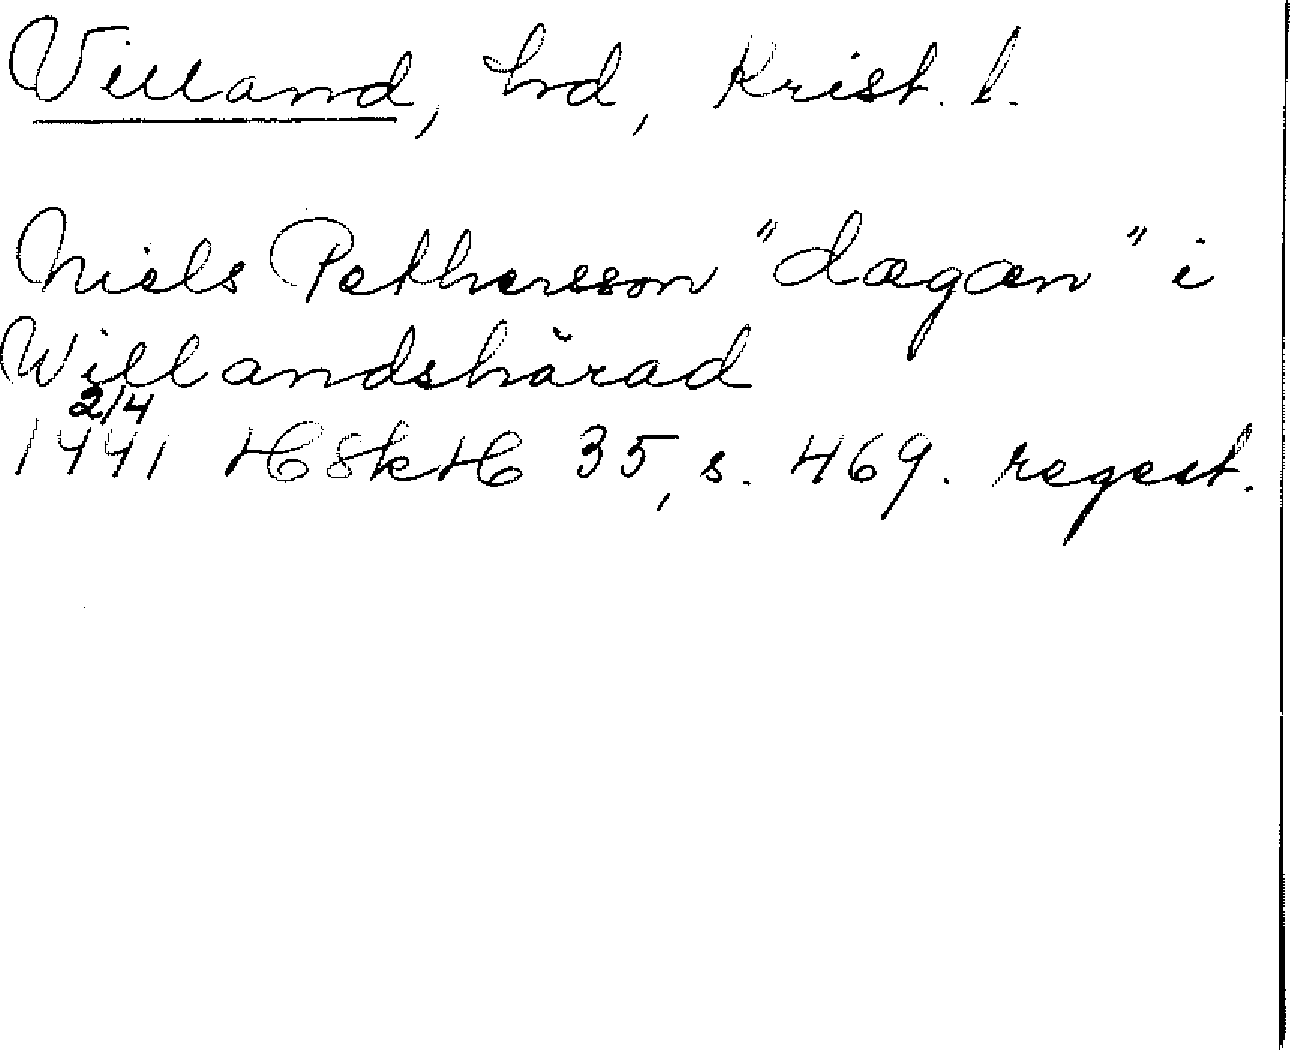 Villand, hd, Krist. l.
Niels Pethersson "dægæn" i
Willandshärad
2/4
1441 HSkH 35, s. 469. regest.